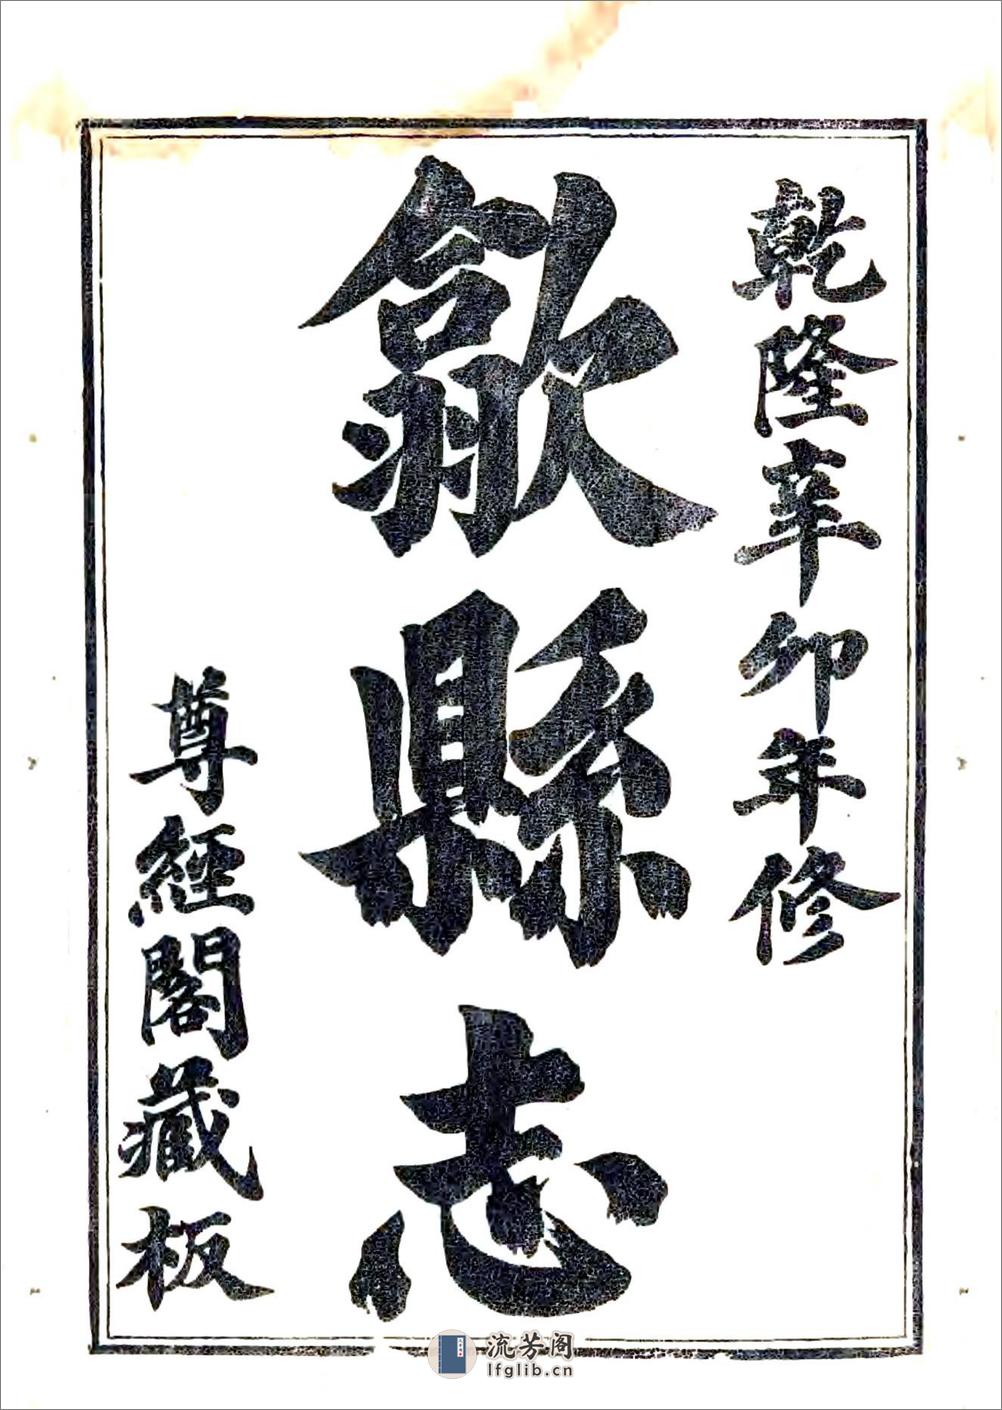 乾隆辛卯年修
歙縣志
尊經閣藏板
流芳阁
lfglib.cn